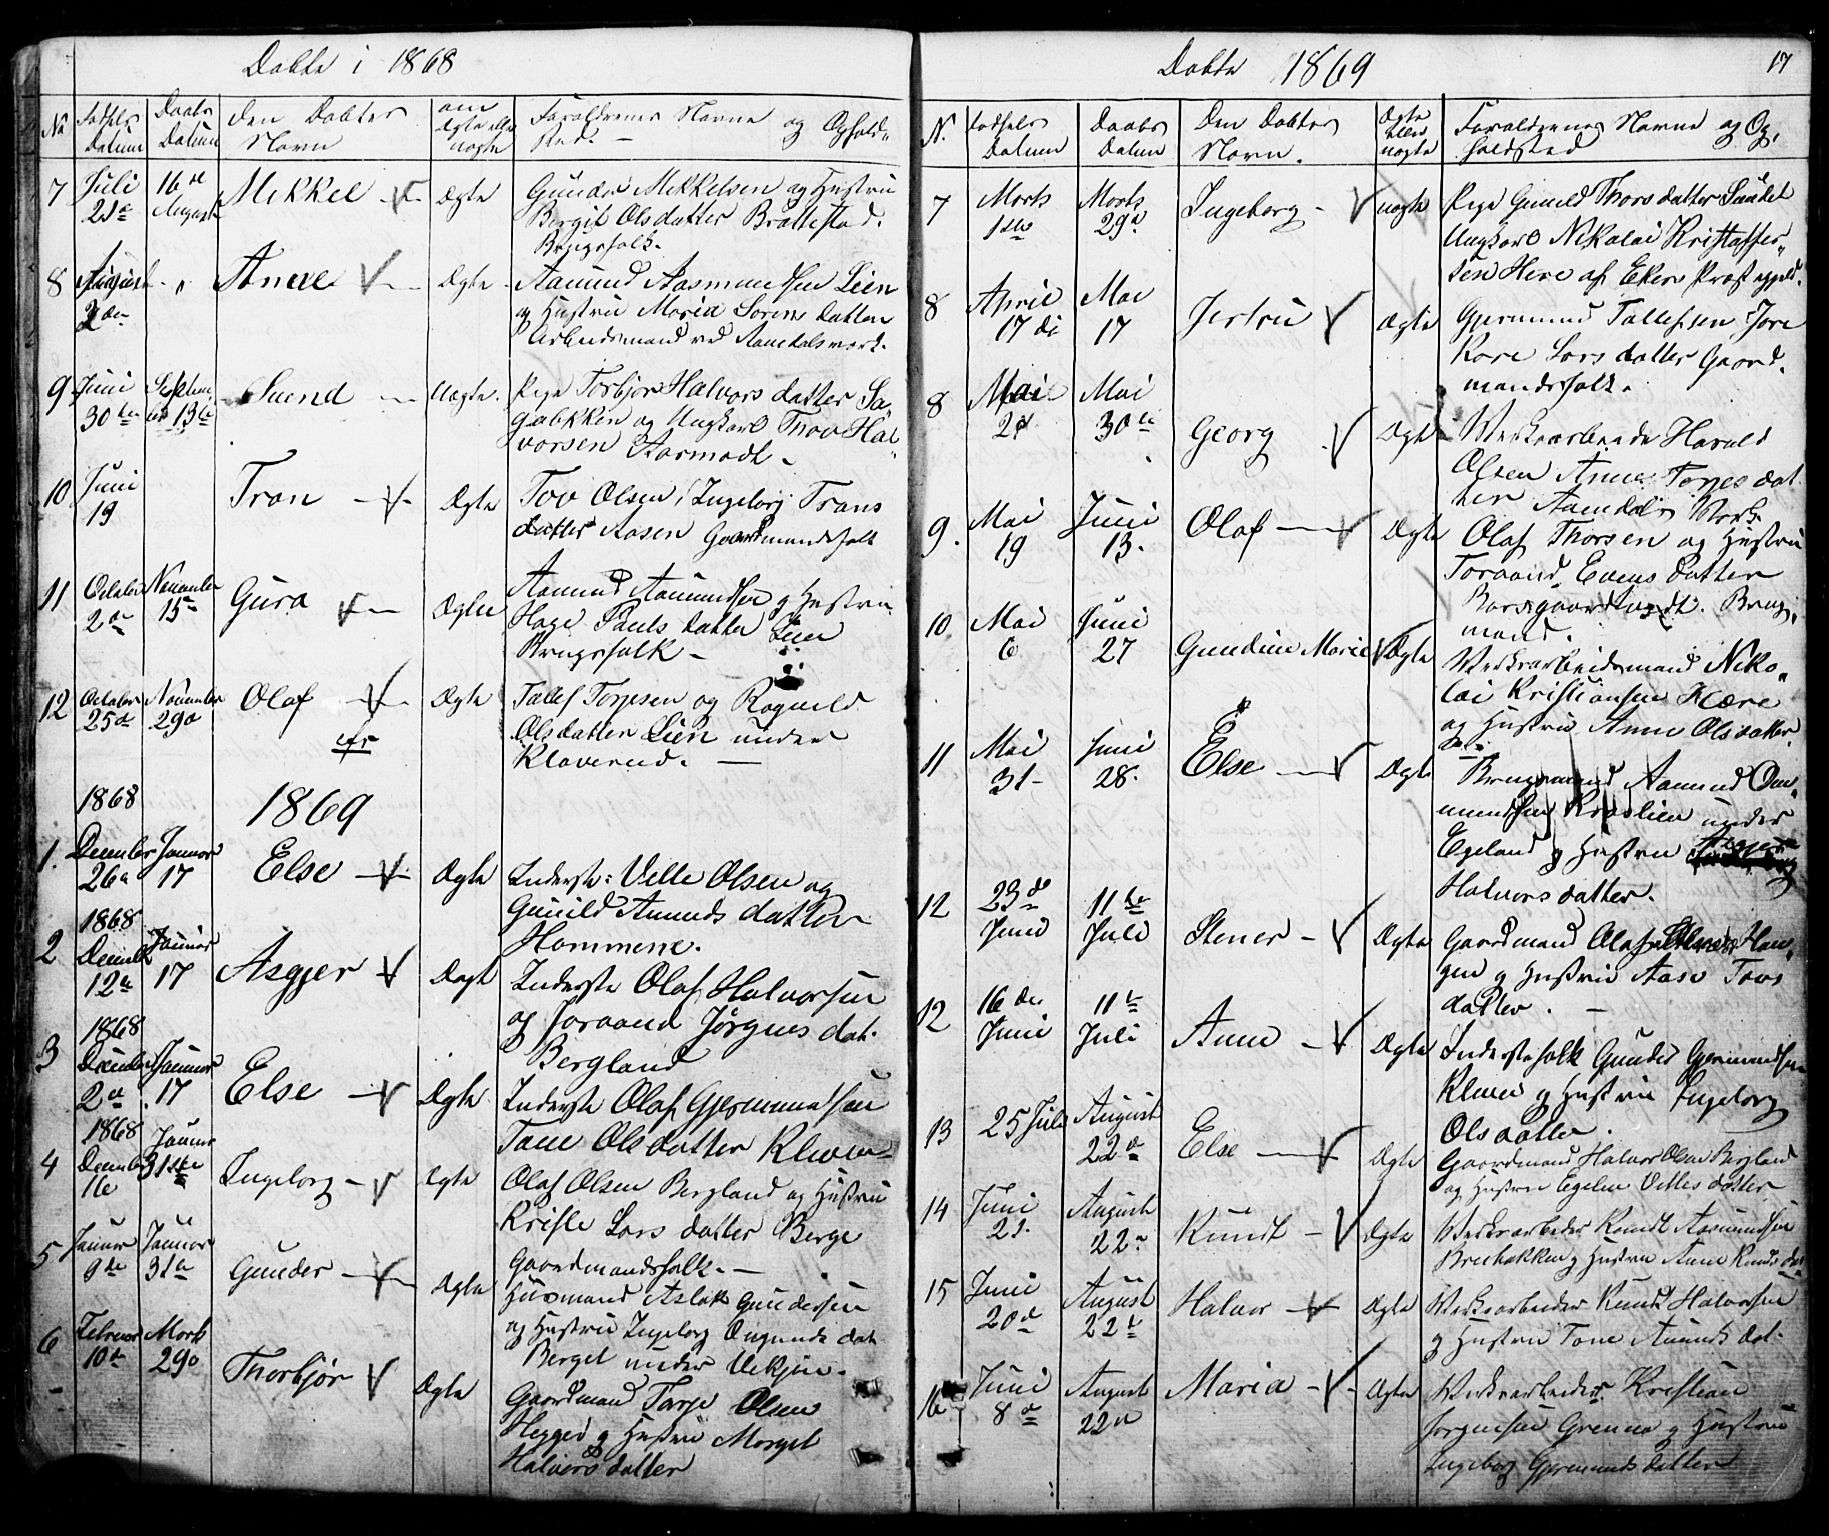 Døbte i 1868
No
Fødsels Datum
Daabs Datum
Den Døbtes Navn
om Ægte eller uægte
Forældrenes Navne og Opholds Sted.
7 Juli 21de 16de August Mikkel Ægte Gunder Mikkelsen og Hustru
Birgit Olsdatter Brattestad.
Brugsfolk.
8 August 2den " Anne Ægte Aamund Aasmundsen Lien
og Hustru Maria Sørens datter
Arbeidsmand ved Aamdalsværk.
9 Juni 30te September 13de Svend Uægte. Pige Torbjør Halvors datter Sa
gabkken og Ungkarl Thov Hal
vorsen Aarmodt
10 Juni 19 Tron Ægte Tov Olsen, Ingeborg Trons
datter Aasen Gaardmandsfolk
11 October 2de November 15de Guro Ægte Aamund Aamundsen og Hustru
Hage Pauls datter Lien
Brugsfolk
12 October 25de November 29de Olaf Ægte Tallef Torjesen og Ragnild
Olsdatter Lien under
Klaverud.
1868
1869
1. December 26de Januar 17 Else Ægte Inderste: Velle Olsen og
Gunild Amunds datter
Hommene.
2 1868 December 12de Januar 17 Asgjer Ægte Inderste Olaf Halvorsen
og Joraand Jørgnes dat.
Bergland
3 1868 December 2de Januar 17 Else Ægte Inderste Olaf Gjermundsen
Tone Olsdatter Kleven
4 1868 December 16 Januar 31te Ingeborg Ægte Olaf Olsen Bergland og Hustru
Kristie Lars datter Berge
Gaardmandsfolk.
5 Januar 9de Januar 31te Gunder Ægte Husmand Aslak Gundersen
og Hustru Ingeborg Ougunds dat
Berget under Vekjen.
6 Februar 10de Marts 29de Thorbjør Ægte Gaardmand Torje Olsen
Heggei og Hustru Margit
Halvors datter
Døbte 1869
17
N.
Fødsels Datum
Daabs Datum
Den Døbtes Navn.
Ægte eller uægte
Forældrenes Navne og Op,
holdsted
7 Marts 1ste Marts 29de Ingeborg uægte Pige Gunild Thorsdatter Sundet
Ungkarl Nikolai Kristaffer
sen Here af Ekers Præstegjeld.
8 April 17de Mai 17 Jertru Ægte Gjermund Tallefsen Jore
Kare Lars datter Gaard
mandsfolk.
8 Mai 2d Mai 30te Georg Ægte Værksarbeide Harald
Olsen Anne Torjes dat
ter Aamdals Værk.
9. Mai 19 Juni 13. Olaf Ægte Olaf Thorsen og Hustru
Toraand Evens datter
Brugs
mand.
10 Mai 6 Juni 27 Gundine Marie Ægte Værksarbeidsmand Niko
lai Kristiansen Kære
og Hustru Anne Olsdatter
11 Mai 31 Juni 28. Else Ægte Brugsmand Aamund Om
mundsen Kraalien under
Egeland og Hustru
Halvors datter.
12 23de Juni 11te Juli Stener Ægte Gaardmand Olaf Stener Hau
gen og Hustru Aase Tovs
datter.
12 16de Juni 11te Juli Anne Ægte Inderstefolk Gunder Gjermundsen
Kleven og Hustru Ingeborg
Olsdatter.
13 25 Juli August 22de Else Ægte Gaardmand Halvor Olsen Bergland
og Hustru Egelie Vetles datter
14 Juni 21. August 22de Kundt Ægte Værksarbeider Kundt Aasmundsen
Breibakken og Hustru Anne Knuds dat
15 Juni 20de August 22de Halvor Ægte Værksarbeider Kundt Halvorsen
og Hustru Tone Amunds dat.
16 Juni 8de August 22de Maria Ægte Værksarbeider Kristian
Jørgensen Grenne og Hustru
Ingeborg Gjermunds datter